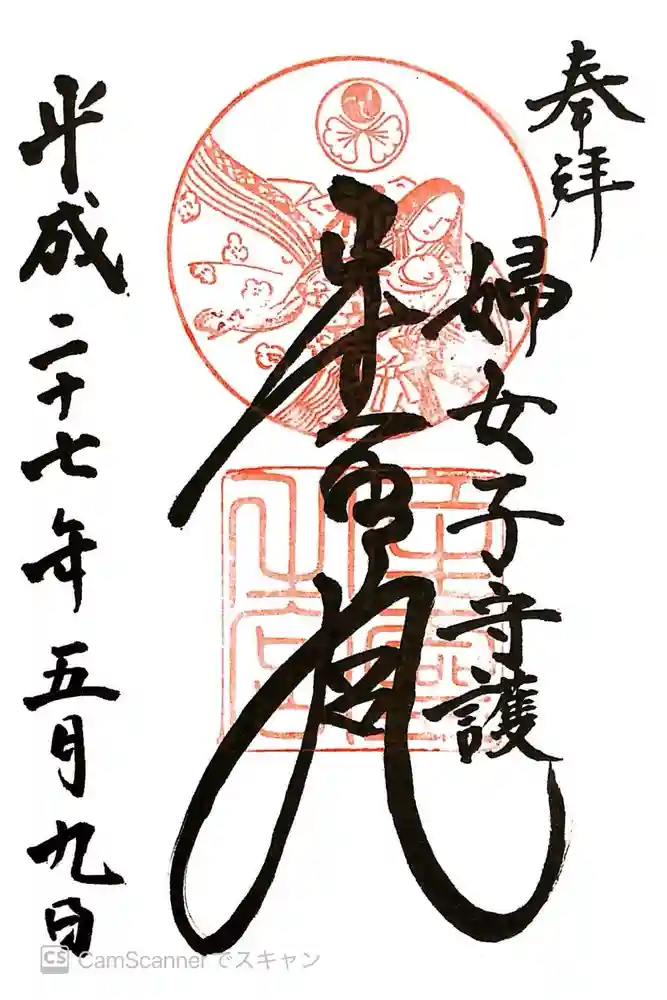 奉拝
婦女子守護
平成二十七年五月九日
CS CamScannerでスキャン